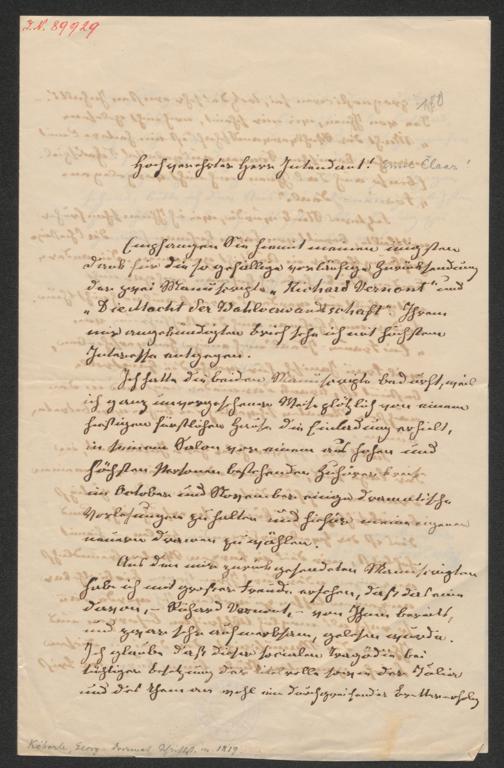 I.N. 89929
180
Hochverehrter Herr Intendant! Emil Claar!
Empfangen Sie hiemit meinen innigsten
Dank für die so gefällige vorläufige Zurücksendung
der zwei Manuscripte „Richard Vernont" und
„Die Macht der Wahlverwandtschaft". Ihrem
mir angekündigten Brief sehe ich mit höchstem
Interesse entgegen.
Ich hatte die beiden Manuscripte bedurft, weil
ich ganz unvorgesehener Weise plötzlich von einem
hiesigen fürstlichen Hause die Einladung erhielt,
in seinem Salon vor einem aus hohen und
höchsten Personen bestehenden Zuhörerkreis
im October und November einige dramatische
Vorlesungen zu halten und hiefür meine eigenen
neueren Dramen zu wählen.
Aus den mir zurückgesendeten Manuscripten
habe ich mit großer Freude ersehen, daß das eine
davon, – Richard Vernont, – von Ihnen bereits,
und zwar sehr aufmerksam, gelesen wurde.
Ich glaube daß dieser socialen Tragödie bei
tüchtiger Besetzung der Titelrolle sowie der Julia
und des ein durchgreifender Bretter-erfolg
Köberle, Georg dramat. Schriftst. 1819